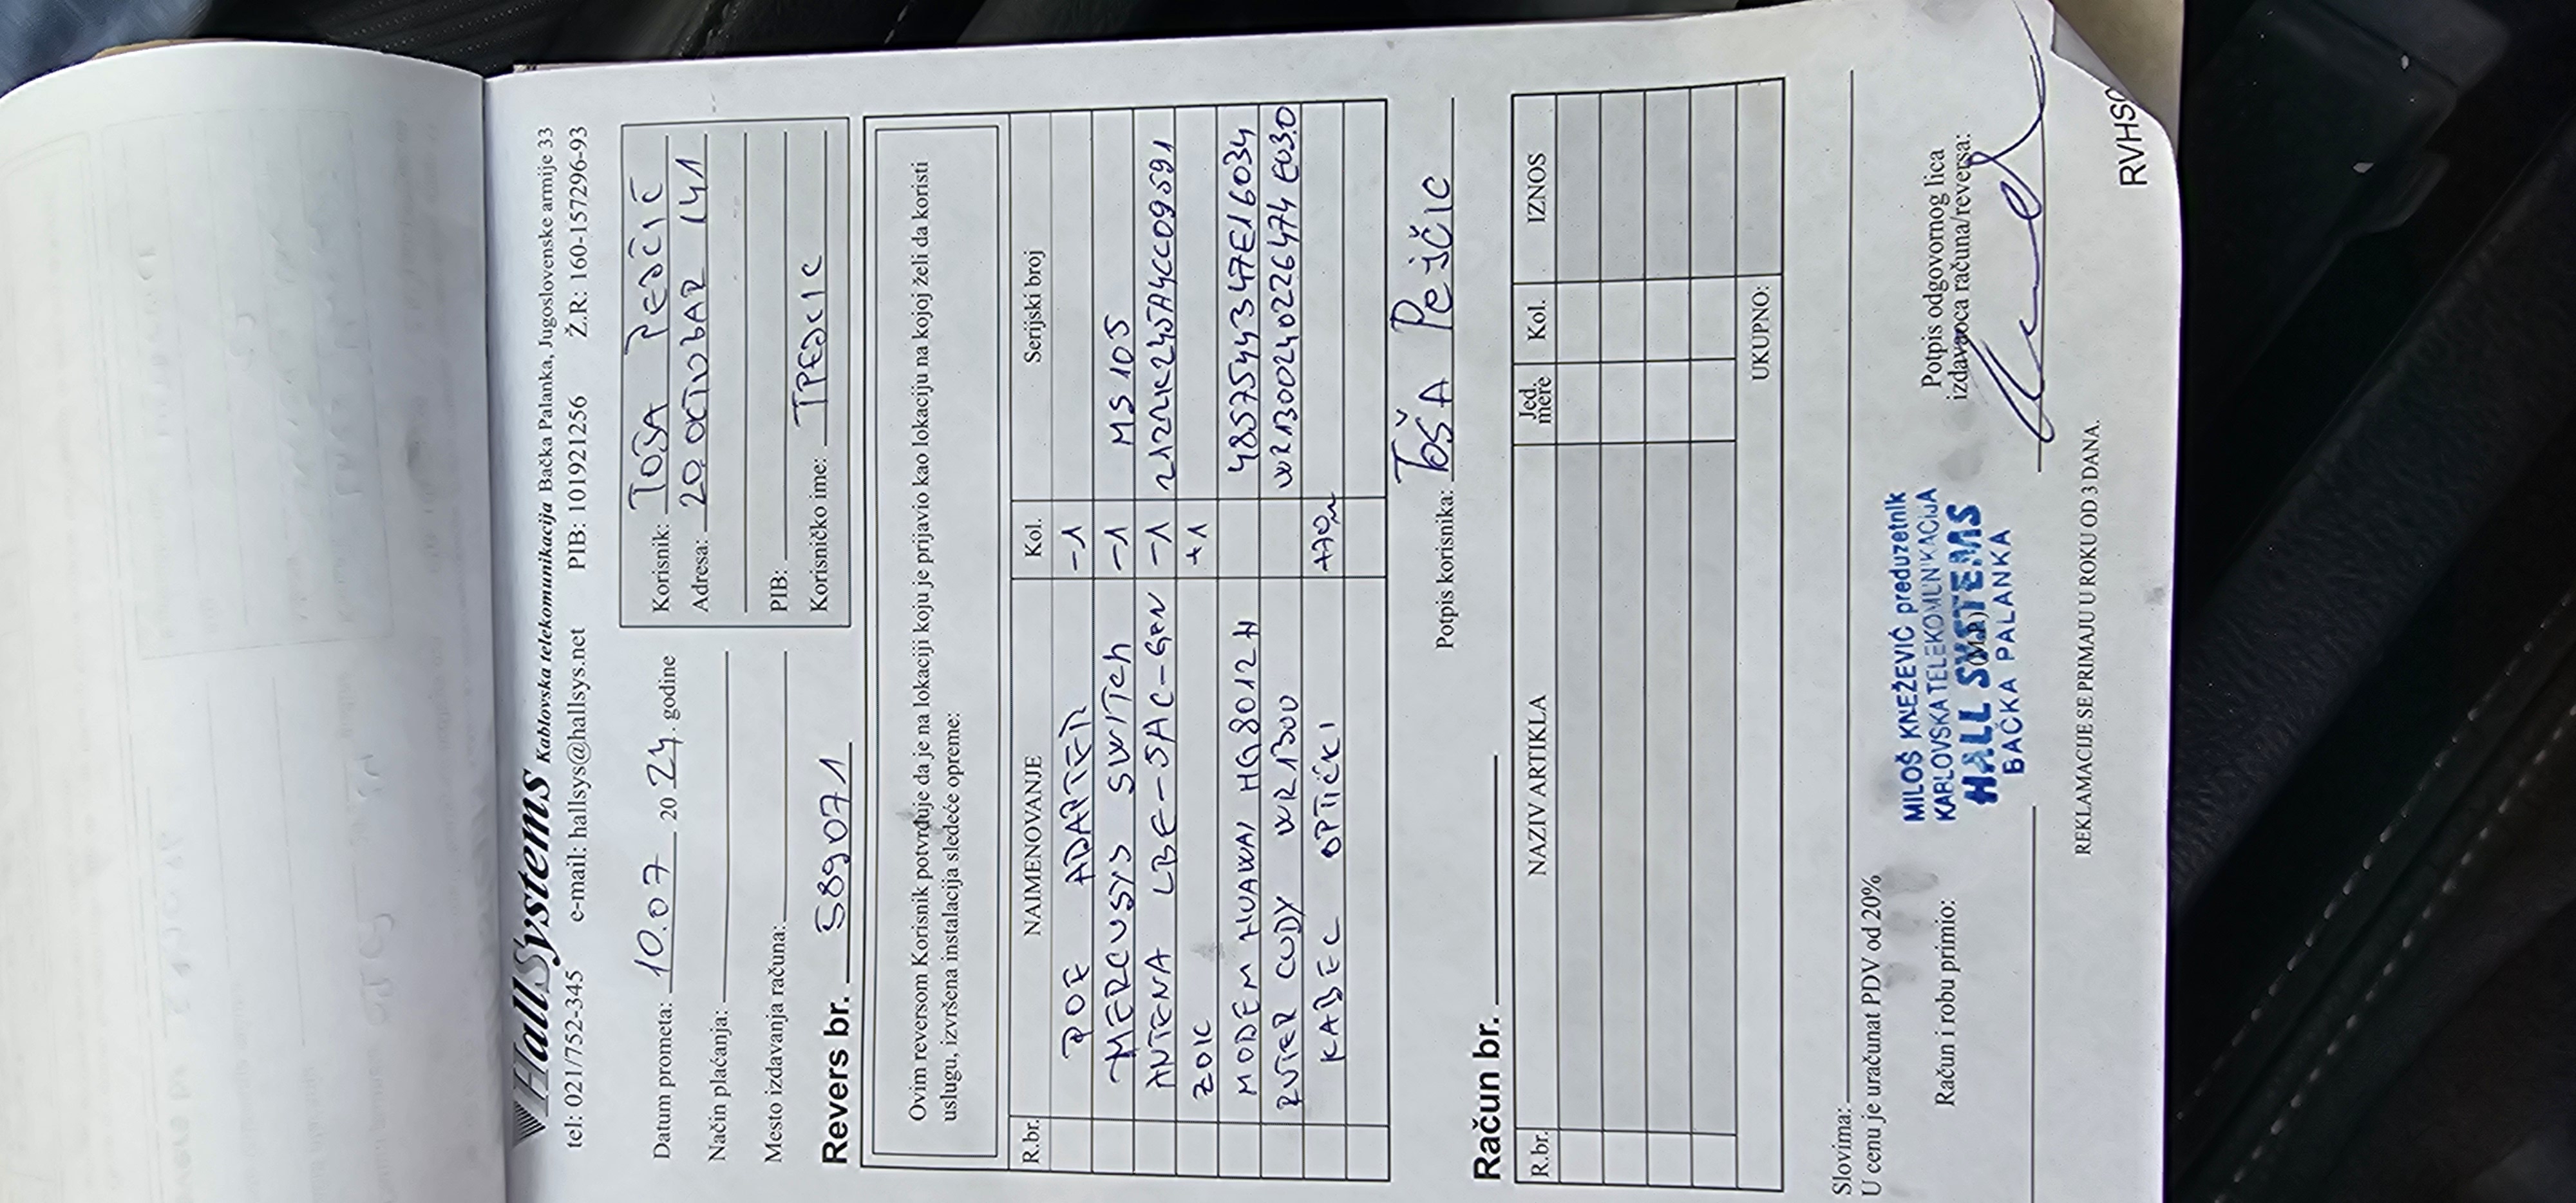 HallSystems Kablovska telekomunikacija Bačka Palanka, Jugoslovenske armije 33
tel: 021/752-345 e-mail: hallsys@hallsys.net PIB: 101921256 Ž.R: 160-157296-93
Datum prometa: 10.07 2024. godine
Način plaćanja:
Mesto izdavanja računa:
Korisnik: TOŠA PEJČIĆ
Adresa: 20. OCTOBAR 141
PIB:
Korisničko ime: TPEJCIC
Revers br. 589071
Ovim reversom Korisnik potvrđuje da je na lokaciji koju je prijavio kao lokaciju na kojoj želi da koristi
uslugu, izvršena instalacija sledeće opreme:
R.br. NAIMENOVANJE Kol. Serijski broj
POE ADAPTER -1
MERCUSYS SWITCH -1 MS105
ANTENA LBE-5AC-GEN -1
ZOIC +1
MODEM HUAWAI HG8012H 4857544347E16034
RUTER CUDY WR1300 WR1300240226474E030
KABEL OPTIČKI +70m
Potpis korisnika: TOŠA PEJČIĆ
Račun br.
R.br. NAZIV ARTIKLA Jed. mere Kol. IZNOS
UKUPNO:
Slovima:
U cenu je uračunat PDV od 20%
Račun i robu primio:
MILOŠ KNEŽEVIĆ preduzetnik
KABLOVSKA TELEKOMUNIKACIJA
HALL SYSTEMS
BAČKA PALANKA
(M.P.)
Potpis odgovornog lica
izdavaoca računa/reversa:
REKLAMACIJE SE PRIMAJU U ROKU OD 3 DANA.